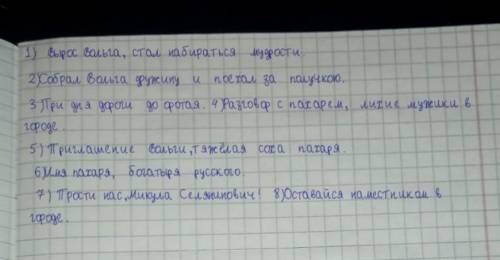 1) Вырос Вольга, стал набираться мудрости.
2) Собрал Вольга дружину и поехал за получкою.
3 Три дня дороги до оротая. 4) Разговор с пахарем, лихие мужики в
городе.
5) Приглашение Вольги, тяжёлая соха пахаря.
6) Имя пахаря, богатыря русского
7) Прости нас, Микула Селянинович! 8) Оставайся наместником в
городе.